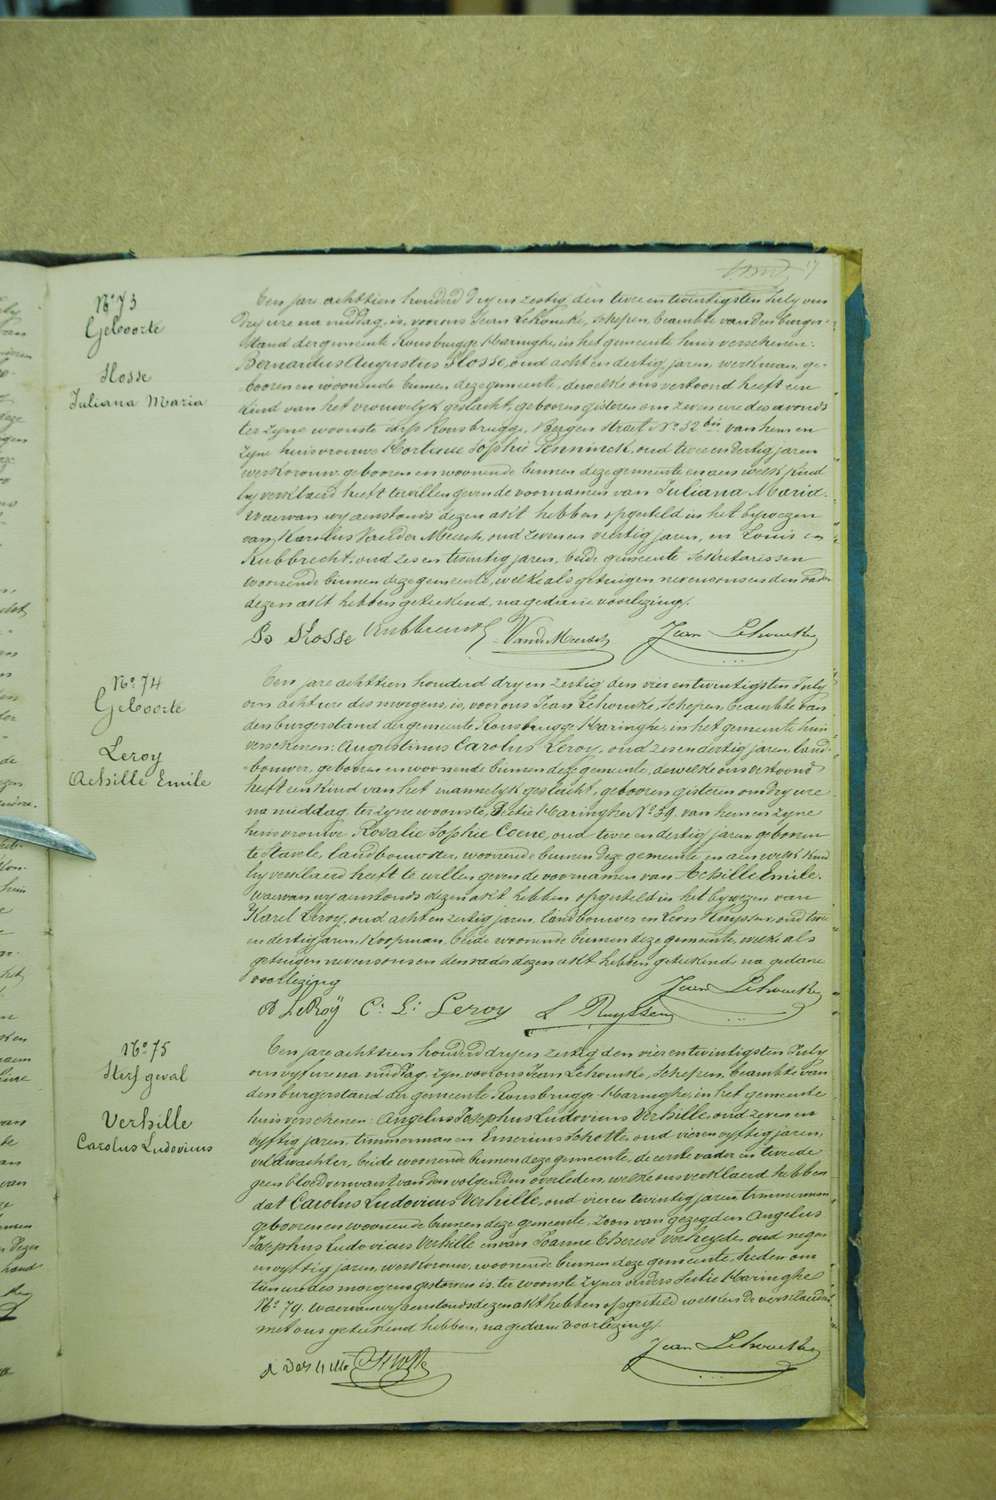 N.º 73
Geboorte
Hosse
Juliana Maria
Een jare achttien honderd dry en zestig, den twee en twintigsten July om
dry ure na middag, is, voor ons Jean Lehoucke, Schepen, beambte van den burger-
stand der gemeente Rousbrugge Haringhe, in het gemeente huis verschenen:
Bernardus Augustus Hosse, oud acht en dertig jaren, werkman, ge-
booren en woonende binnen deze gemeente, dewelke ons vertoond heeft een
kind van het vrouwelyk geslacht, gebooren gisteren om zeven ure des avonds
ter zyne woonste wyk Rousbrugge, Bergen straet N.º 32 bis van hem en
zyne huisvrouwe Sophie oud twee en dertig jaren
werkvrouw, gebooren en woonende binnen deze gemeente en aen welk kind
hy verklaerd heeft te willen geven de voornamen van Juliana Maria.
Waervan wy aenstonds dezen akt hebben opgesteld in het bywezen
van Karolus Vander Meersch, oud zeven en veertig jaren, en Louis
Rubbrecht, oud zes en twintig jaren, beide gemeente Sekretarissen
woonende binnen deze gemeente, welke als getuigen nevens ons en den vader
dezen akt hebben geteekend, na gedane voorlezing.
Hosse Rubbrecht VandMeersch Jean Lehoucke
N.º 74
Geboorte
Leroy
Achille Emile
Een jare achttien honderd dry en zestig, den vier en twintigsten July
om acht ure des morgens, is, voor ons Jean Lehoucke, Schepen, beambte van
den burgerstand der gemeente Rousbrugge Haringhe, in het gemeente huis
verschenen: Augustinus Carolus Leroy, oud zes en dertig jaren, land-
bouwer, gebooren en woonende binnen deze gemeente, dewelke ons vertoond
heeft een kind van het mannelyk geslacht, gebooren gisteren om dry ure
na middag, ter zyne woonste, Sectie Haringhe N.º 59. van hem en zyne
huisvrouwe Rosalie Sophie Coene, oud twee en dertig jaren, gebooren
te Stavele, landbouwster, woonende binnen deze gemeente, en aen welk kind
hy verklaerd heeft te willen geven de voornamen van Achille Emile.
Waervan wy aenstonds dezen akt hebben opgesteld in het bywezen van
Karel Leroy, oud acht en zestig jaren, landbouwer en Leon Ruyssen, oud twee
en dertig jaren, Koopman, beide woonende binnen deze gemeente, welke als
getuigen nevens ons en den vader dezen akt hebben geteekend, na gedane
voorlezing
A LeRoÿ C: L: Leroy L Ruyssen Jean Lehoucke
N.º 75
Sterfgeval
Verhille
Carolus Ludovicus
Een jare achttien honderd dry en zestig, den vier en twintigsten July
om vyf ure na middag, zyn, voor ons Jean Lehoucke, Schepen, beambte van
den burgerstand der gemeente Rousbrugge Haringhe, in het gemeente
huis verschenen: Angelus Josephus Ludovicus Verhille, oud zeven en
vyftig jaren, timmerman en Emerinus Schotte, oud vier en vyftig jaren,
veldwachter, beide woonende binnen deze gemeente, de eerste vader en tweede
geen bloedverwant van den volgenden overleden, welke ons verklaerd hebben
dat Carolus Ludovicus Verhille, oud vier en twintig jaren, timmerman
gebooren en woonende binnen deze gemeente, Zoon van gezegden Angelus
Josephus Ludovicus Verhille en van Joanne Therese Verheyde, oud negen
en vyftig jaren, werkvrouw, woonende binnen deze gemeente, heden om
tien ure des morgens gestorven is, ter woonste zyner ouders Sectie Haringhe
N.º 79. waervan wy aenstonds dezen akt hebben opgesteld welken de verklaerders
met ons geteekend hebben, na gedane voorlezing.
A Verhille Jean Lehoucke